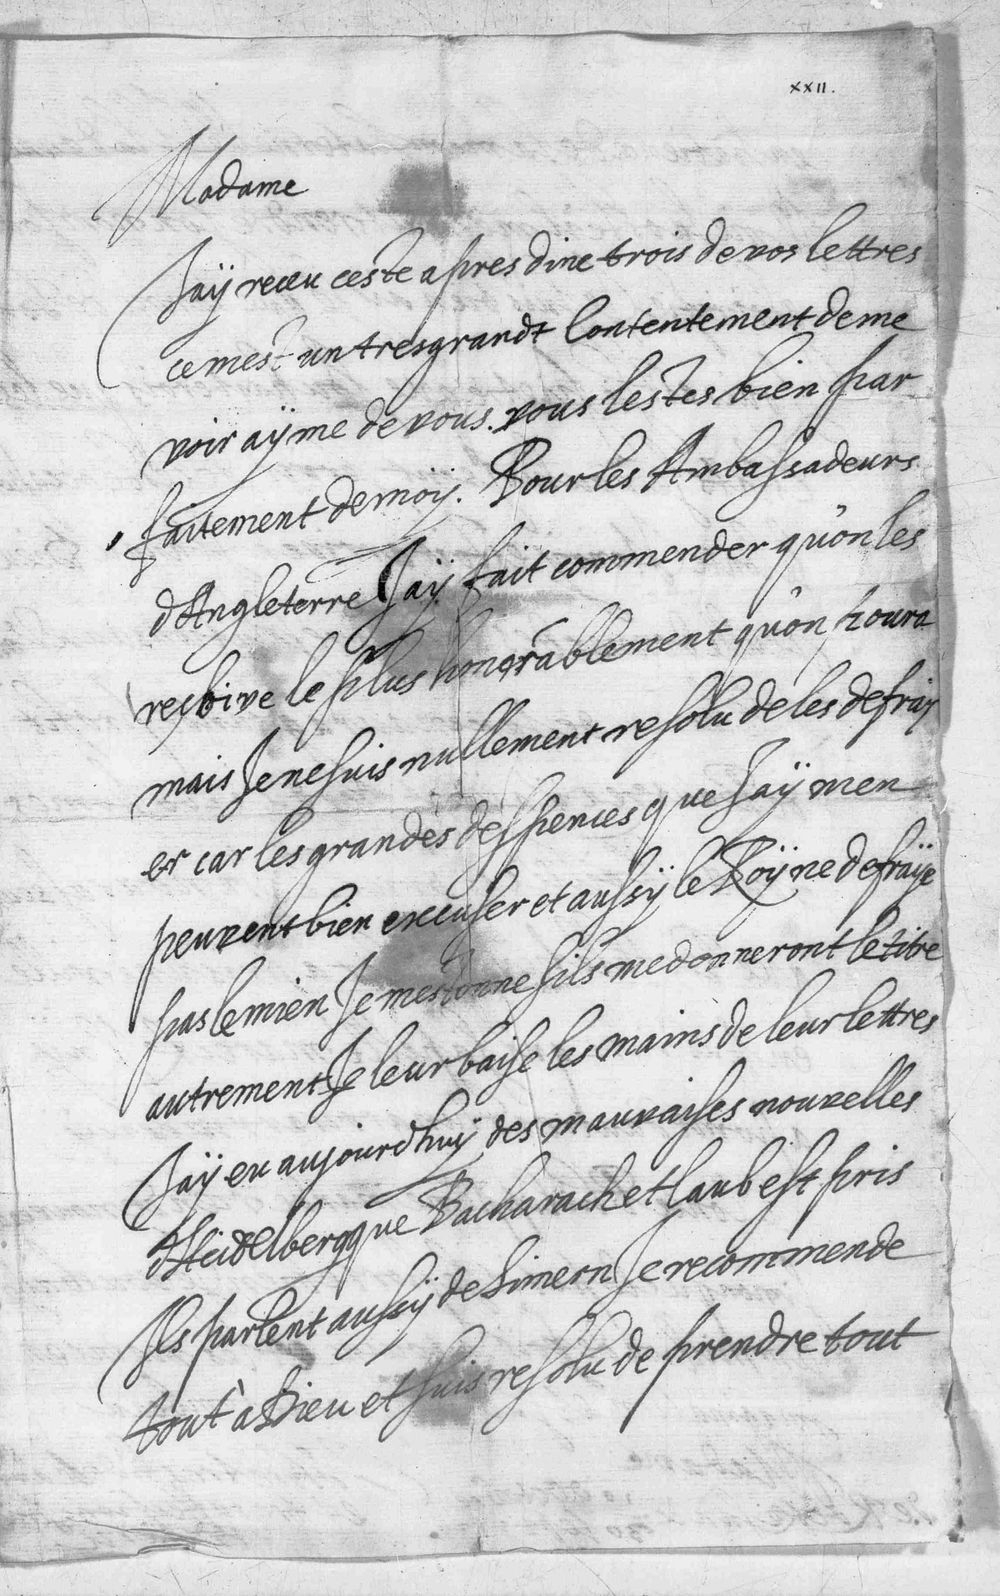 XXII.
Madame
Jaÿ receu ceste apres dine trois de vos lettres
ce mest un tresgrandt Contentement de me
voir aÿme de vous. vous lestes bien par
faitement de moÿ. Pour les Ambassadeurs
d'Angleterre Jaÿ fait commender qu'on les
reçoive le plus honorablement qu'on poura
mais Je ne suis nullement resolu de les defraÿ
er car les grandes despences que Jaÿ m'en
peuvent bien excuser et aussÿ le Roÿ ne defraÿe
pas le mien Je mestonne sils me donneront le titre
autrement Je leur baise les mains de leur lettres
Jaÿ eu aujourdhuÿ des mauvaises nouvelles
d'Heidelberg que Bacharach et Caub est pris
Ils parlent aussÿ de Simern Je recommende
tout à Dieu et suis resolu de prendre tout